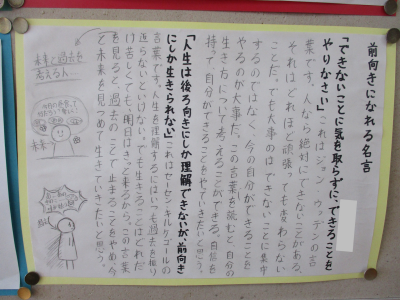 前向きになれる名言
「できないことに気を取らずに、できることを
やりなさい」これはジョン・ウッデンの言
葉です。人なら絶対にできないことがある。
それはどれほど頑張っても変わらない
ことだ。でも大事のはできないことに集中
するのではなく、今の自分ができることを
やるのが大事だ。この言葉を読むと、自分の
生き方について考えることができる。自信を
持って自分ができることをやっていきたいと思う。
「人生は後ろ向きにしか理解できないが、前向き
にしか生きられない」これはセーレンキルケゴールの
言葉です。人生を理解するにはでも過去を振り
返らないといけない。でも生きることはどれだ
け苦しくても、明日はきっと来るから。この言葉
を見ると過去のことで止まることをやめ、今
と未来を見つめて生きていきたいと思う。
未来と過去を
考える人
未来